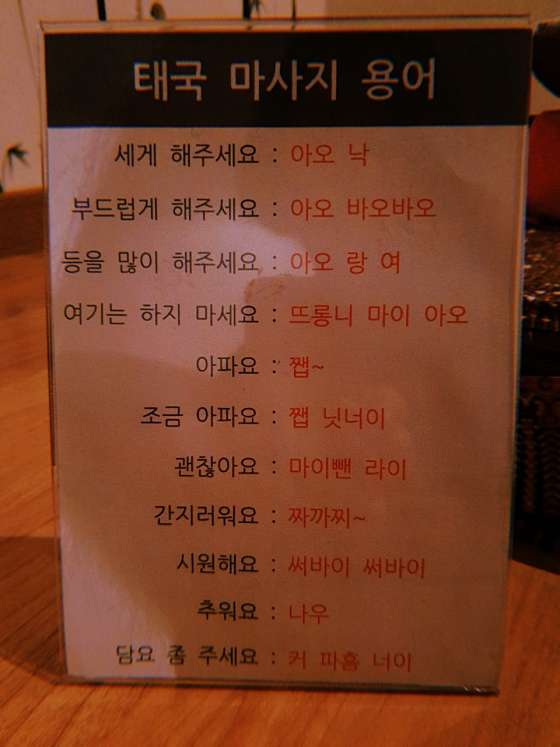 태국 마사지 용어
세게 해주세요 : 아오 낙
부드럽게 해주세요 : 아오 바오바오
등을 많이 해주세요 : 아오 랑 여
여기는 하지 마세요 : 뜨롱니 마이 아오
아파요 : 쨉~
조금 아파요 : 쨉 닛너이
괜찮아요 : 마이뺀 라이
간지러워요 : 짜까찌~
시원해요 : 써바이 써바이
추워요 : 나우
담요 좀 주세요 : 커 파홈 너이